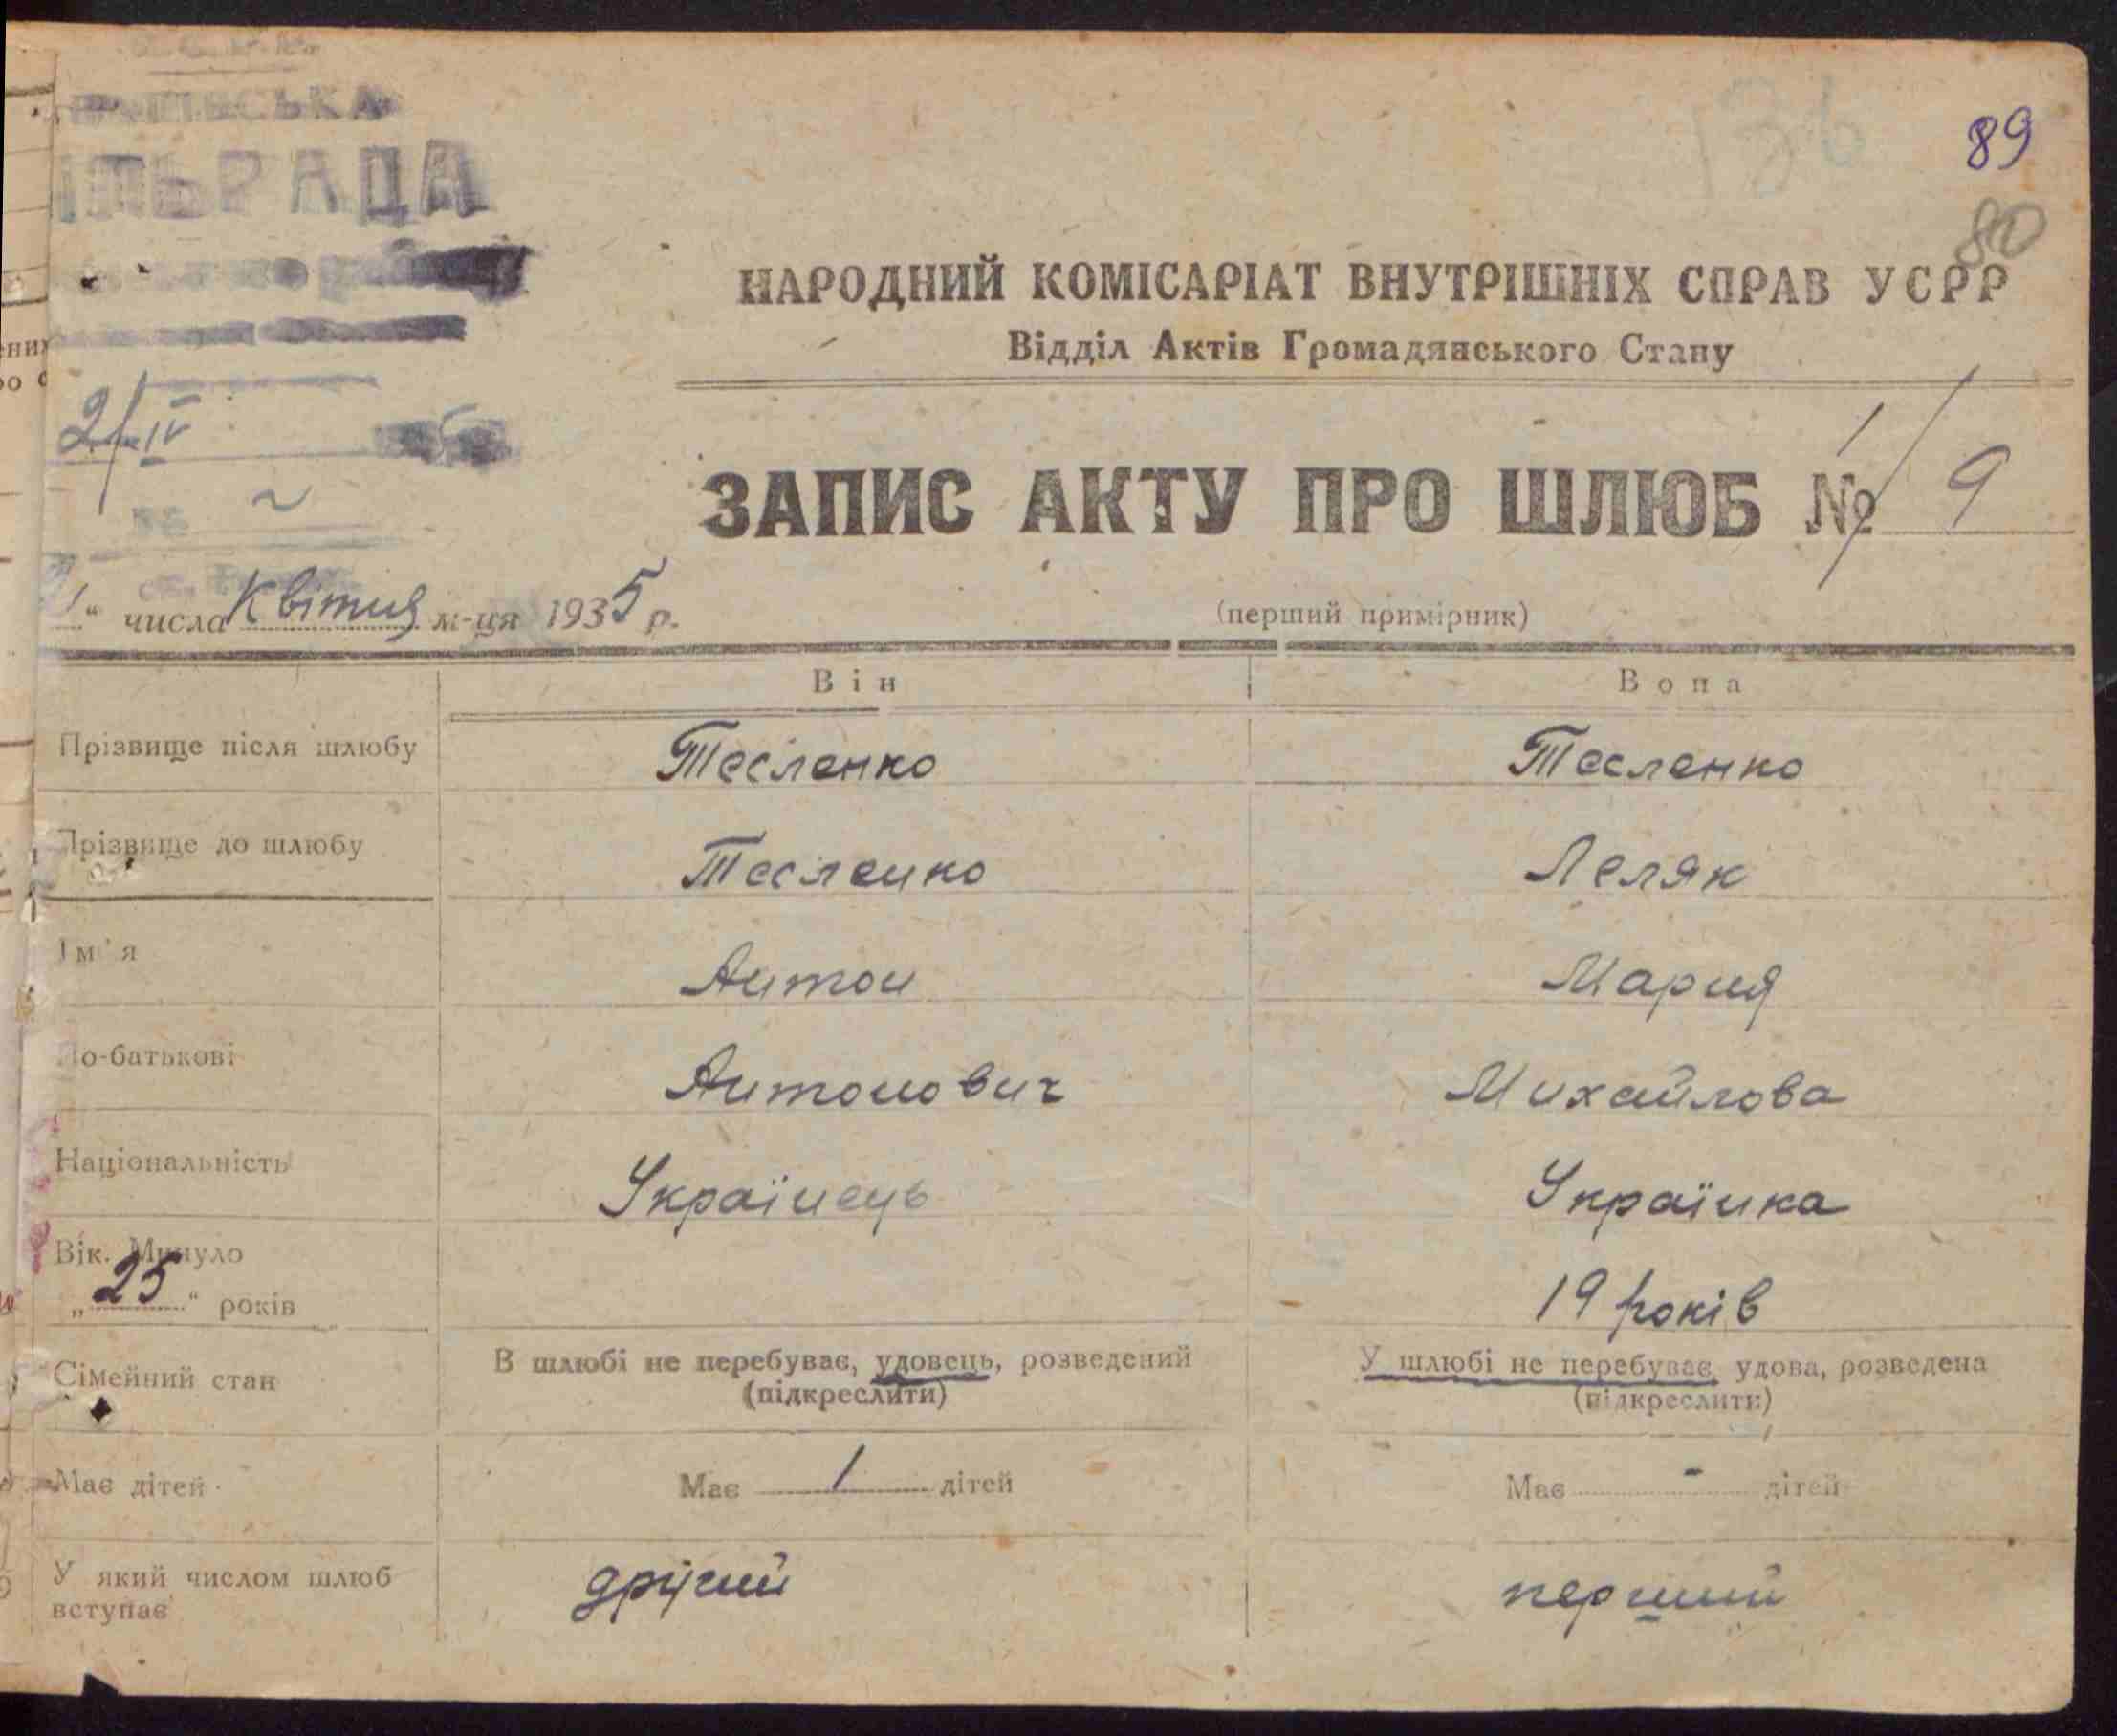 ІЛЬРАДА
89
80
НАРОДНИЙ КОМІСАРІАТ ВНУТРІШНІХ СПРАВ УСРР
Відділ Актів Громадянського Стану
ЗАПИС АКТУ ПРО ШЛЮБ № 9
(перший примірник)
числа Квітня м-ця 1935 р.
Він Вона
Прізвище після шлюбу Тесленко Тесленко
Прізвище до шлюбу Тесленко Леляк
Ім'я Антон Мария
По-батькові Антонович Михайлова
Національність Українець Українка
Вік. Минуло
„25“ років 19 років
Сімейний стан В шлюбі не перебуває, удовець, розведений У шлюбі не перебуває, удова, розведена
(підкреслити) (підкреслити)
Має дітей Має 1 дітей Має - дітей
У який числом шлюб вступає другий перший